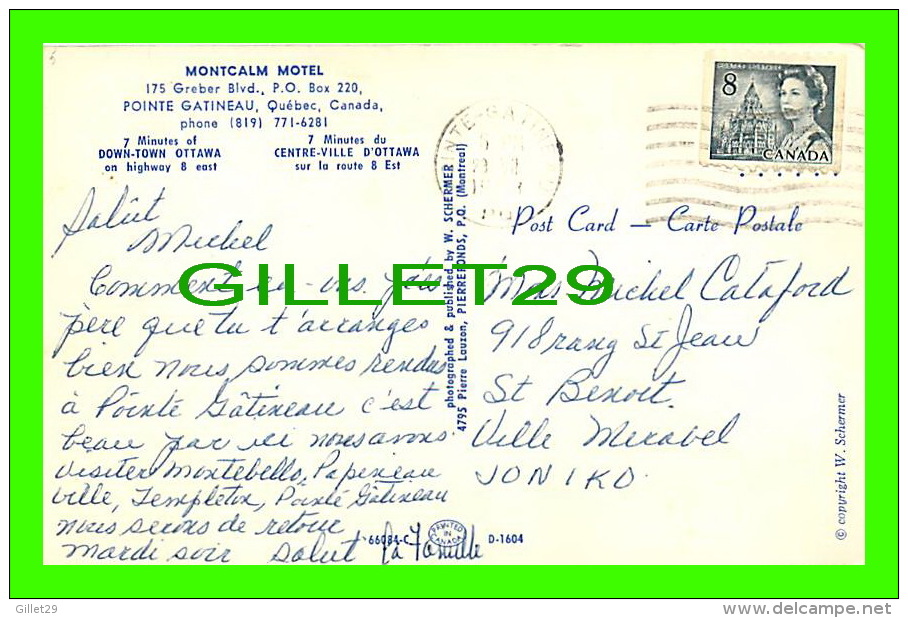 MONTCALM MOTEL
175 Greber Blvd., P.O. Box 220,
POINTE GATINEAU, Québec, Canada,
phone (819) 771-6281
7 Minutes of
DOWN-TOWN OTTAWA
on highway 8 east
7 Minutes du
CENTRE-VILLE D'OTTAWA
sur la route 8 Est
Salût
Michel
Comment
père que tu t'arranges
bien nous sommes rendus
à Pointe Gâtineau c'est
beau par ici nous avons
visiter Montebello, Papineau
ville, Templeton, Pointe Gâtineau
nous serons de retour
mardi soir Salut la Famille
photographed & published by W. SCHERMER
4795 Pierre Lauzon, PIERREFONDS, P.Q. (Montreal)
8
CANADA
Post Card — Carte Postale
Michel Cataford
918 rang St Jean
St Benoit
Ville Mirabel
JON 1KO
© copyright W. Schermer
66084-C
PRINTED IN CANADA
D-1604
GILLET29
Gillet29
http://www.delcampe.net